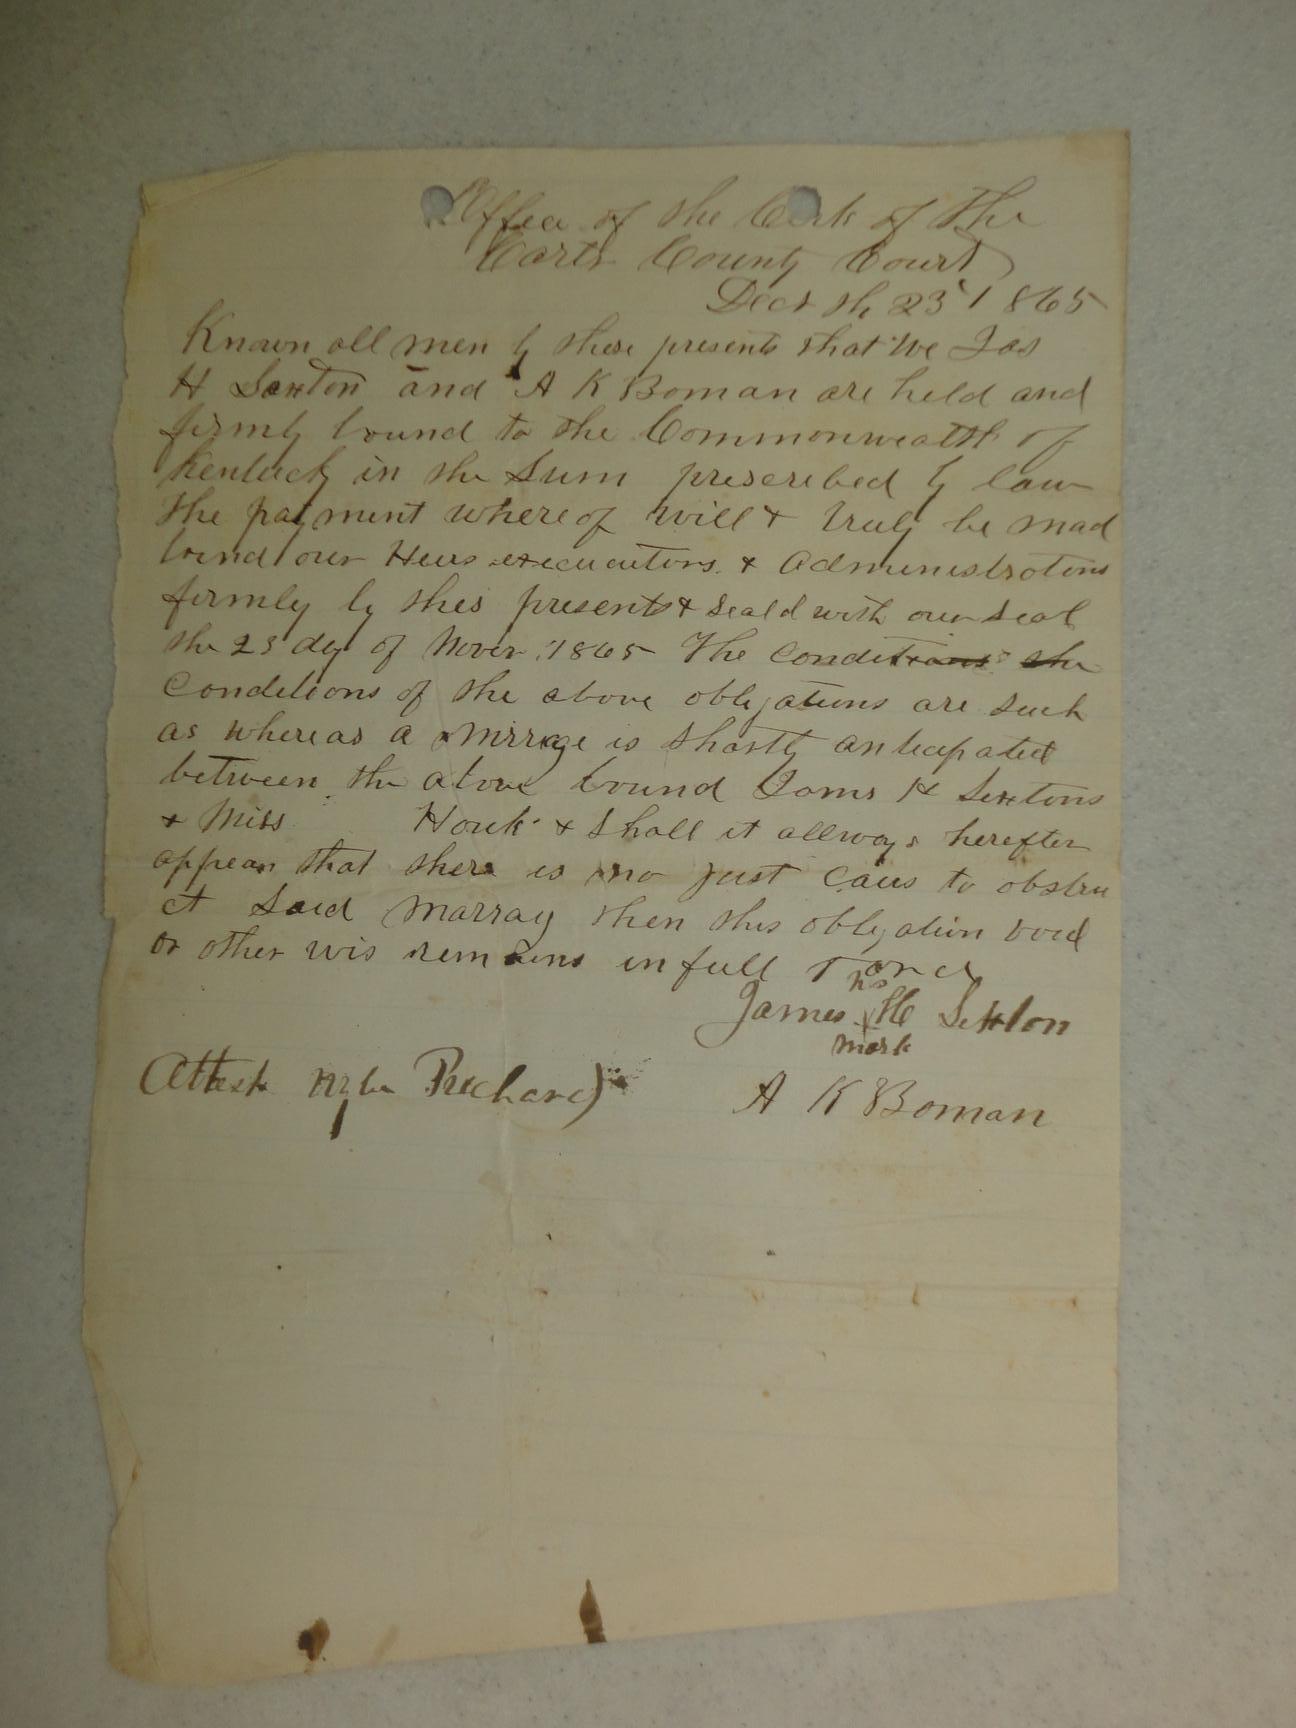 Office of the Clerk of The
Carter County Court
Dect th 23 1865
Known all men by these presents that We Jas
H Sexton and A K Boman are held and
firmly bound to the Commonwealth of
Kentucky in the Sum prescribed by law
The payment where of will & truly be mad
bind our Heirs executors & Administrotions
firmly by this presents & seald with our seal
the 23 day of Nover 1865 The conditions the
conditions of the above obligations are such
as where as a mirrage is Shortly anticipated
between the above bound Jams H Sextons
& Miss Houk & Shall it allways herefter
appear that there is no just caus to obstru
ct Said Marray then this obligation void
or other wis remains in full Force
James his H Sexton
mark
Attest Prichard
A K Boman